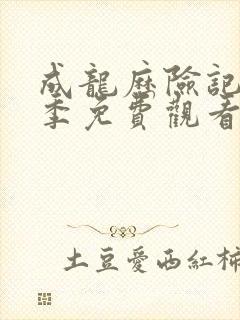 成龍歷險記
季免費觀看
土豆愛西紅柿